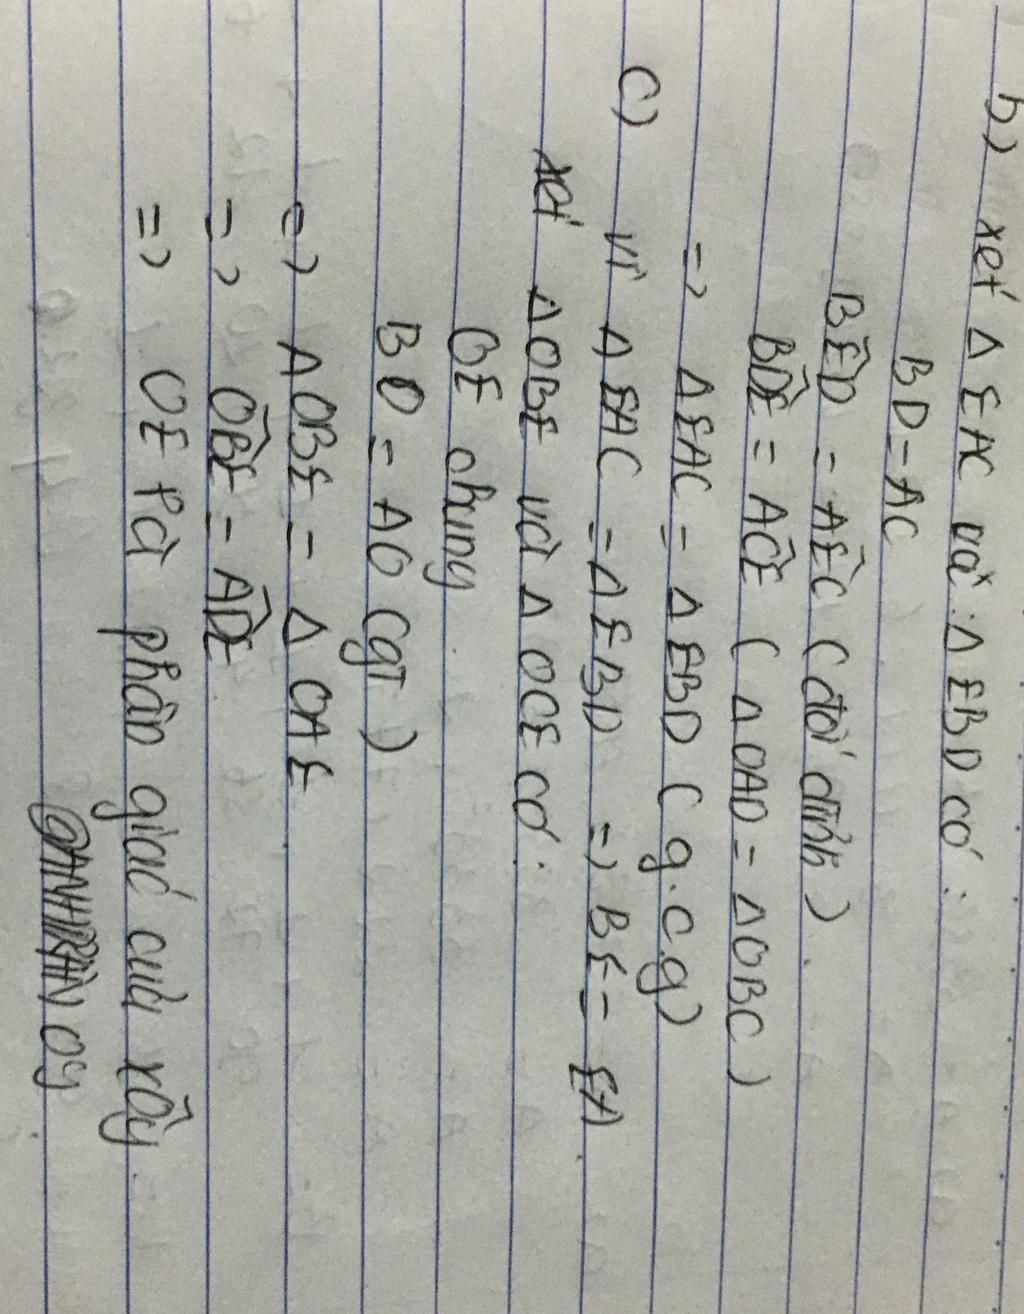 b) xét Δ EAC và Δ EBD có :
BD = AC
BÊD = AÊC (đối đỉnh)
BD̂E = AĈE ( Δ OAD = Δ OBC )
=> Δ EAC = Δ EBD ( g.c.g)
c) vì Δ EAC = Δ EBD => BE = EA
xét Δ OBE và Δ OCE có :
OE chung
BO = AO (gT)
=> Δ OBE = Δ OAE
=> OB̂E = AD̂E
=> OE là phân giác của xÔy